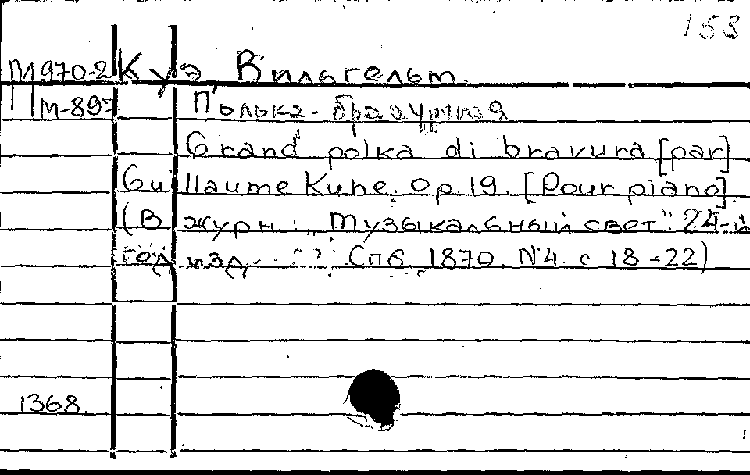 153
М970-2 Куэ, Вильгельм.
М-897 Полька-бравурная
Grand polka di bravura [par]
Guillaume Kuhe. Op. 19. [Pour piano]
(В журн.: „Музыкальный свет". 24-й
год изд. Спб. 1870. N4. с 18-22)
1368.